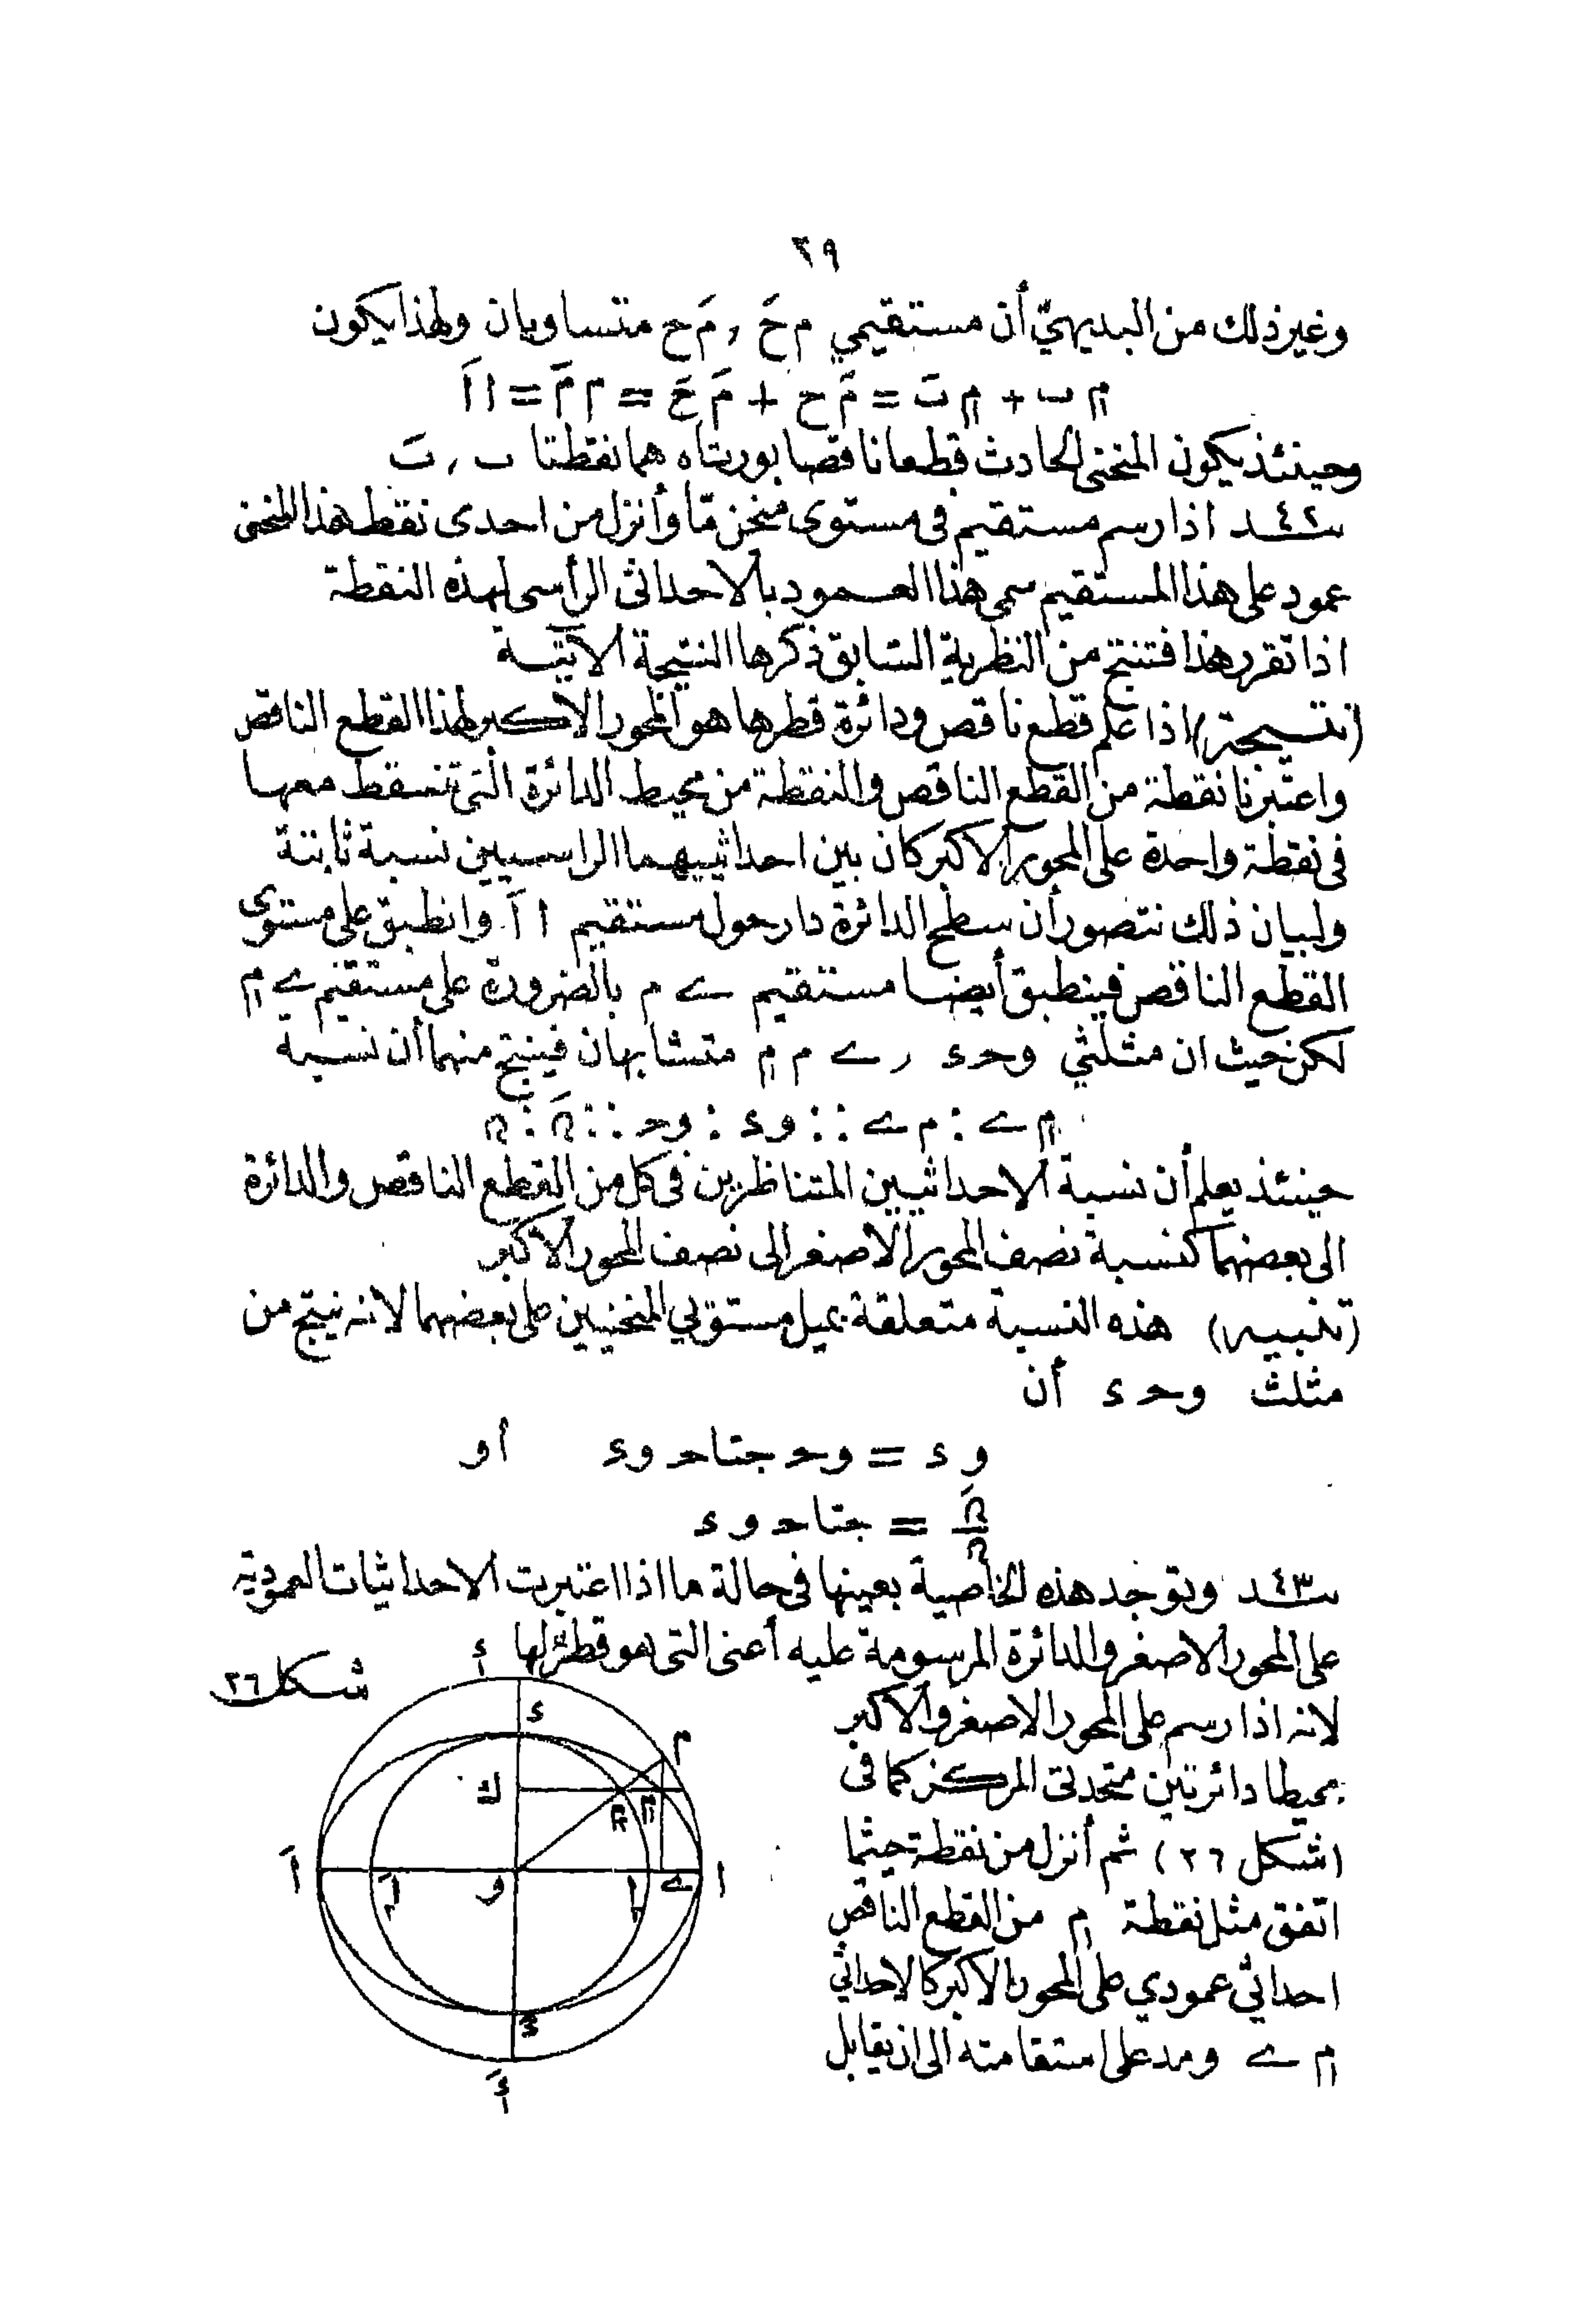 ٣٩
وغير ذلك من البديهيّ أن مستقيمي م حَ , مَ ح متساويان ولهذا يكون
م ب + م بَ = مَ ح + مَ حَ = م مَ = ا اَ
وحينئذ يكون المنحنى الحادث قطعا ناقصا بورتاه هما نقطتا ب , بَ
سـ٤٢ـد اذا رسم مستقيم فى مستوى منحن مّا وأنزل من احدى نقط هذا المنحنى
عمود على هذا المستقيم سمى هذا العمود بالاحداثى الرأسى لهذه النقطة
اذا تقرر هذا فتنتج من النظرية السّابق ذكرها النتيجة الآتية
(نتيجة) اذا علم قطع ناقص ودائرة قطرها هو المحور الاكبر لهذا القطع الناقص
واعتبرنا نقطة من القطع الناقص والنقطة من محيط الدائرة التى تسقط معها
فى نقطة واحدة على المحور الاكبر كان بين احداثييهما الراسيين نسبة ثابتة
ولبيان ذلك نتصور أن سطح الدائرة دار حول مستقيم ا اَ وانطبق على مستوى
القطع الناقص فينطبق أيضا مستقيم ے م بالضرورة على مستقيم ے م
لكن حيث ان مثلثي وحء , ے م م متشابهان فينتج منهما أن نسبة
م ے : م ے :: وء : وح :: ںَ : ں
حينئذ يعلم أن نسبة الاحداثيين المتناظرين فى كل من القطع الناقص والدائرة
الى بعضهما كنسبة نصف المحور الاصغر الى نصف المحور الاكبر
(تنبيه) هذه النسبة متعلقة بميل مستويي المنحنيين على بعضهما لانه ينتج من
مثلث وحء أن
وء = وح جتا ح وء أو
ںَ/ں = جتا ح وء
سـ٤٣ـد وتوجد هذه الخاصية بعينها فى حالة ما اذا اعتبرت الاحداثيات العمودية
على المحور الاصغر والدائرة المرسومة عليه أعنى التى هو قطر لها
شكل ٢٦
لانه اذا رسم على المحور الاصغر والاكبر
محيطا دائرتين متحدتى المركز كما فى
(شكل ٢٦) ثم أنزل من نقطة حيثما
اتفق مثل نقطة م من القطع الناقص
احداثى عمودي على المحور الاكبر كالاحداثي
م ے ومد على استقامته الى ان يقابل
ء
ء
م
ك
م
م
اَ
اَ
و
ا
ے
ا
ءَ
ءَ